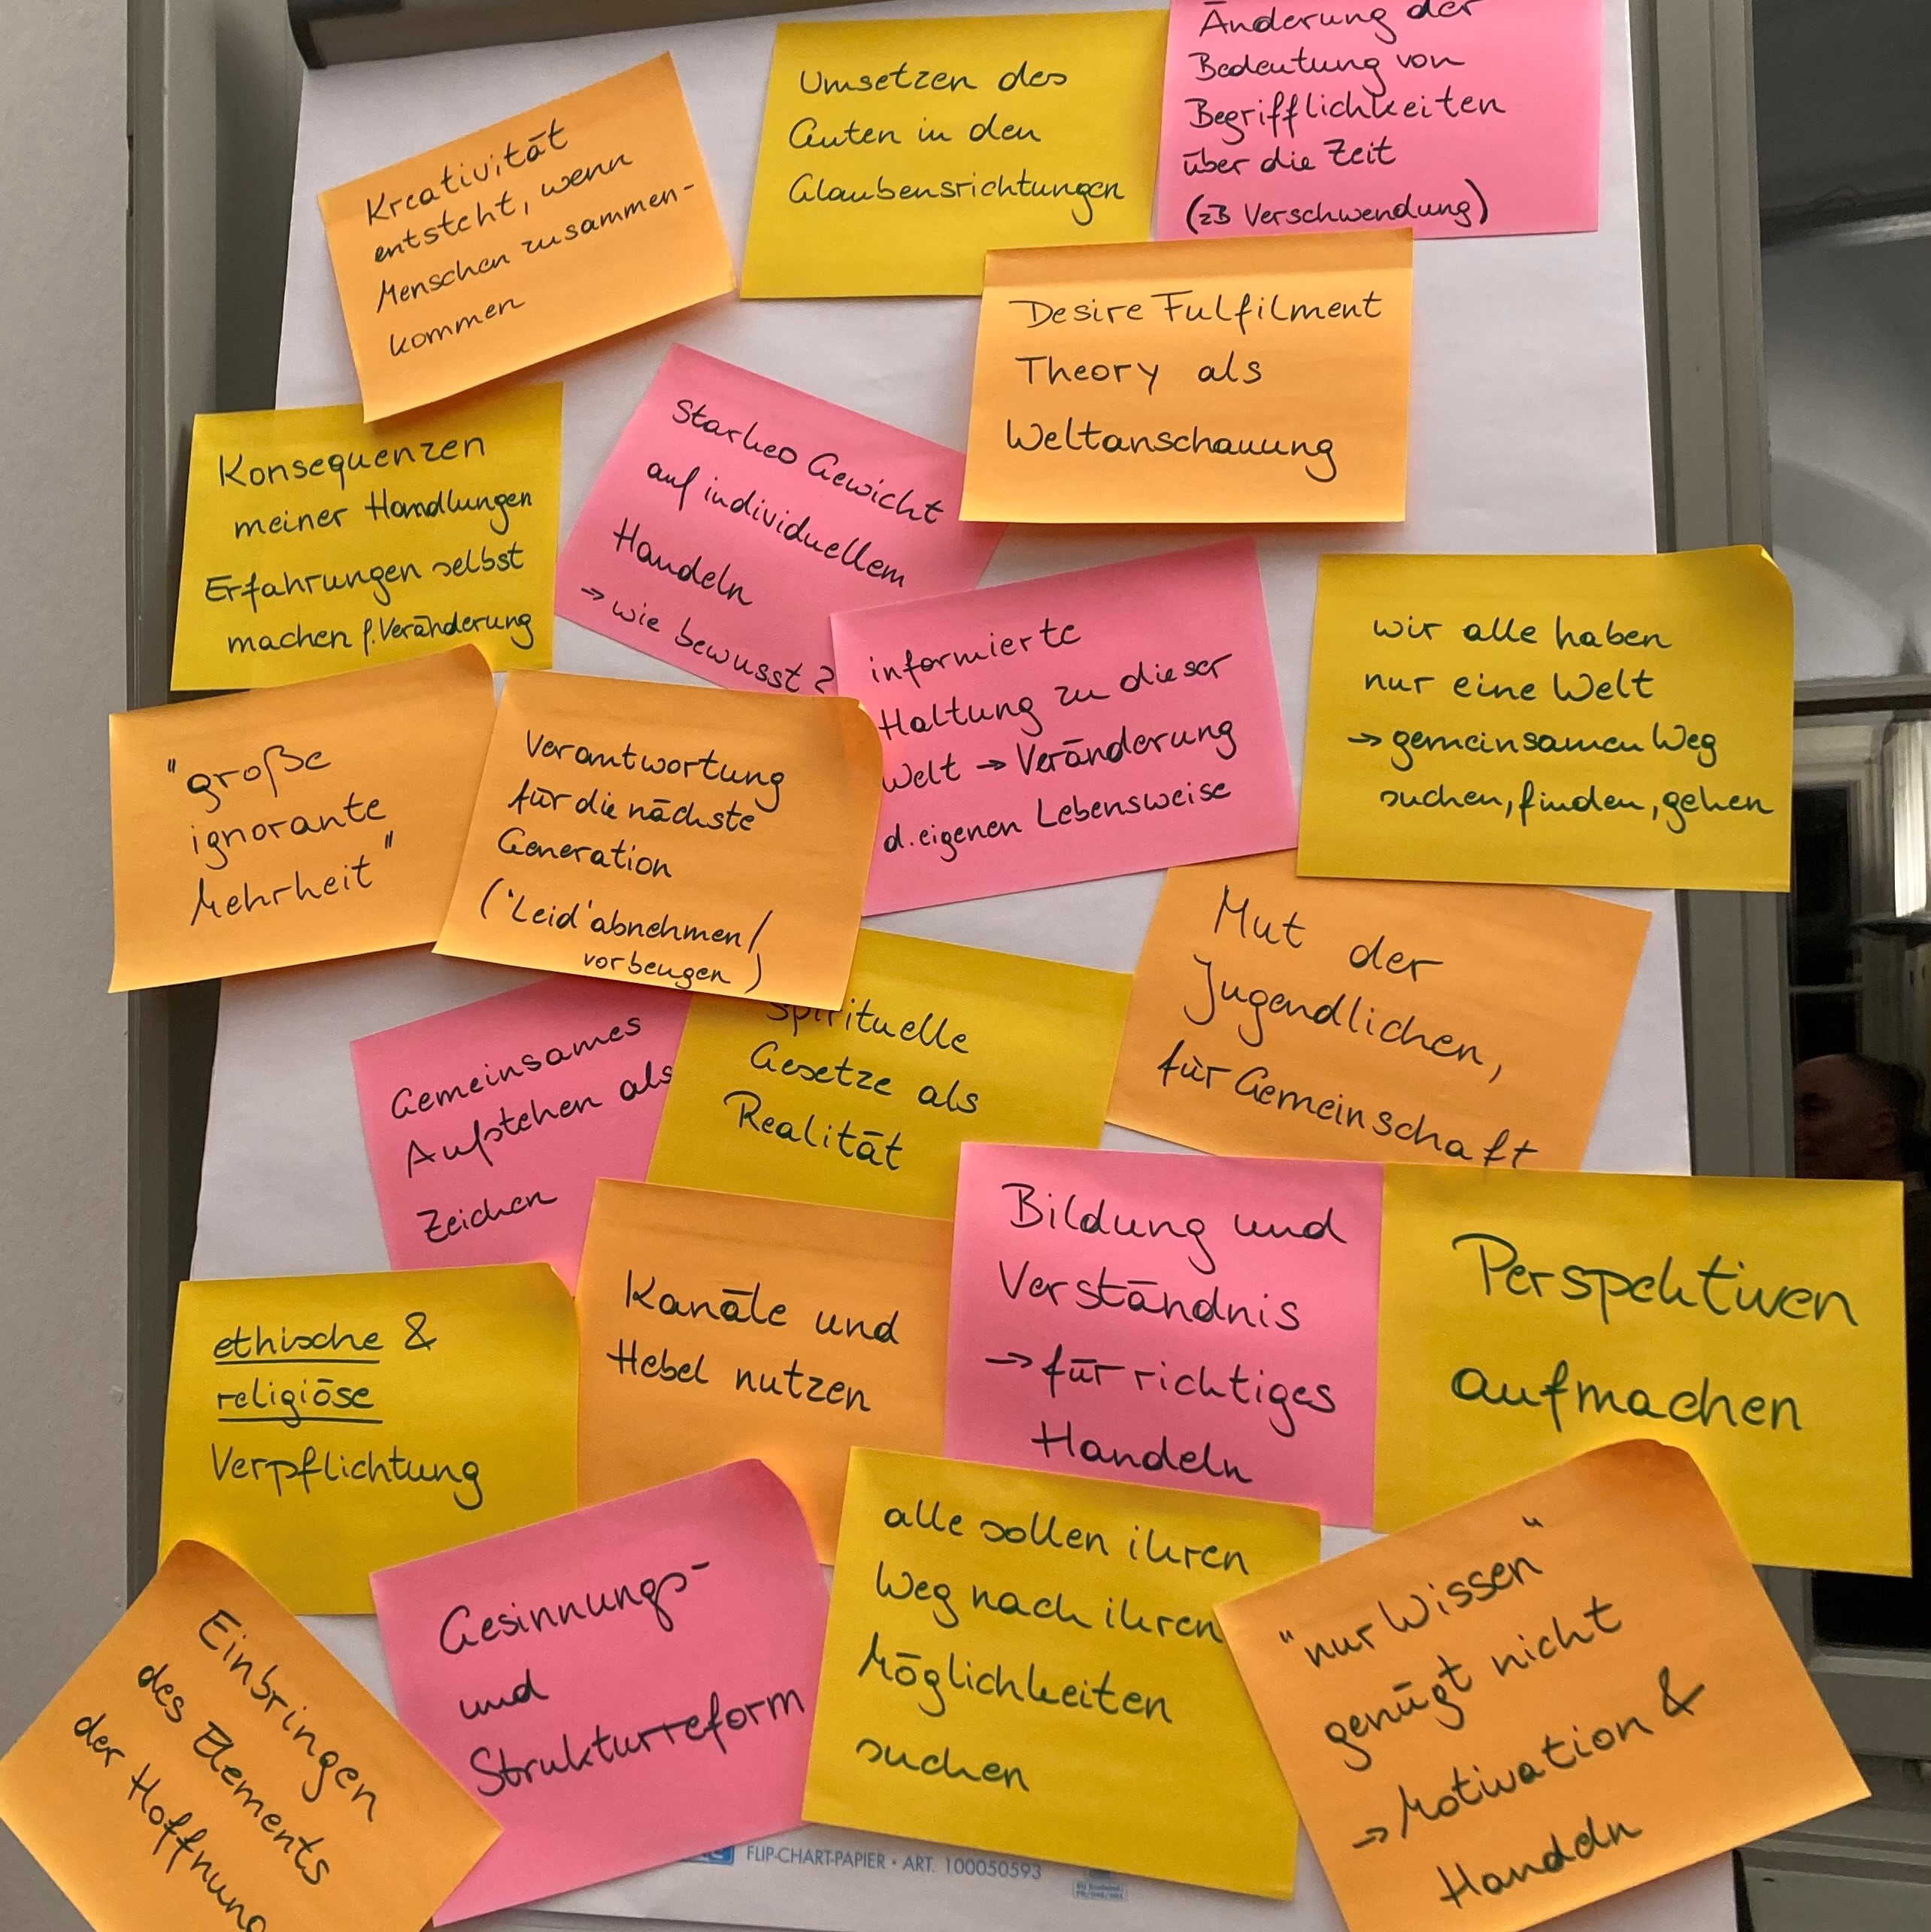 Kreativität
entsteht, wenn
Menschen zusammen-
kommen
Umsetzen des
Guten in den
Glaubensrichtungen
Änderung der
Bedeutung von
Begrifflichkeiten
über die Zeit
(zB Verschwendung)
Desire Fulfilment
Theory als
Weltanschauung
Konsequenzen
meiner Handlungen
Erfahrungen selbst
machen f. Veränderung
Starkes Gewicht
auf individuellem
Handeln
→ wie bewusst?
informierte
Haltung zu dieser
Welt → Veränderung
d. eigenen Lebensweise
wir alle haben
nur eine Welt
→ gemeinsamen Weg
suchen, finden, gehen
"große
ignorante
Mehrheit"
Verantwortung
für die nächste
Generation
('Leid' abnehmen/
vorbeugen)
Gemeinsames
Aufstehen als
Zeichen
Spirituelle
Gesetze als
Realität
Mut der
Jugendlichen,
für Gemeinschaft
ethische &
religiöse
Verpflichtung
Kanäle und
Hebel nutzen
Bildung und
Verständnis
→ für richtiges
Handeln
Perspektiven
aufmachen
Einbringen
des Elements
der Hoffnung
Gesinnungs-
und
Strukturreform
alle sollen ihren
Weg nach ihren
Möglichkeiten
suchen
"nur Wissen"
genügt nicht
→ Motivation &
Handeln
FLIP-CHART-PAPIER • ART. 100050593